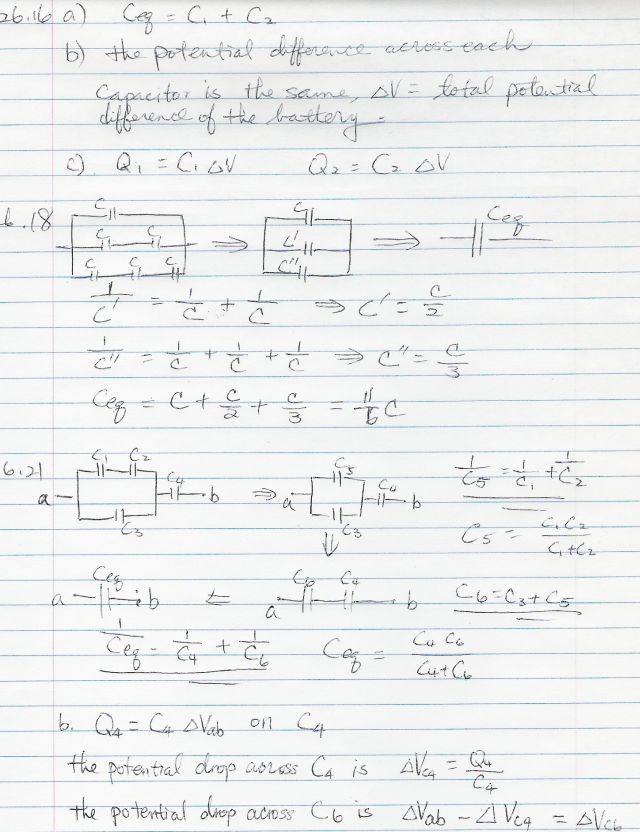 26.16 a) Ceq = C₁ + C₂
b) the potential difference across each
Capacitor is the same, ΔV = total potential
difference of the battery.
c) Q₁ = C₁ ΔV Q₂ = C₂ ΔV
6.18 C C C C C C ⇒ C C' C'' ⇒ Ceq
1/C' = 1/C + 1/C ⇒ C' = C/2
1/C'' = 1/C + 1/C + 1/C ⇒ C'' = C/3
Ceq = C + C/2 + C/3 = 11/6 C
6.21 a C₁ C₂ C₃ C₄ b ⇒ a C₅ C₃ C₄ b 1/C₅ = 1/C₁ + 1/C₂
⇓ C₅ = C₁C₂/C₁+C₂
a Ceq b ⇐ a C₆ C₄ b C₆ = C₃ + C₅
1/Ceq = 1/C₄ + 1/C₆ Ceq = C₄C₆/C₄+C₆
b. Q₄ = C₄ ΔVab on C₄
the potential drop across C₄ is ΔVC₄ = Q₄/C₄
the potential drop across C₆ is ΔVab − ΔVC₄ = ΔVC₆